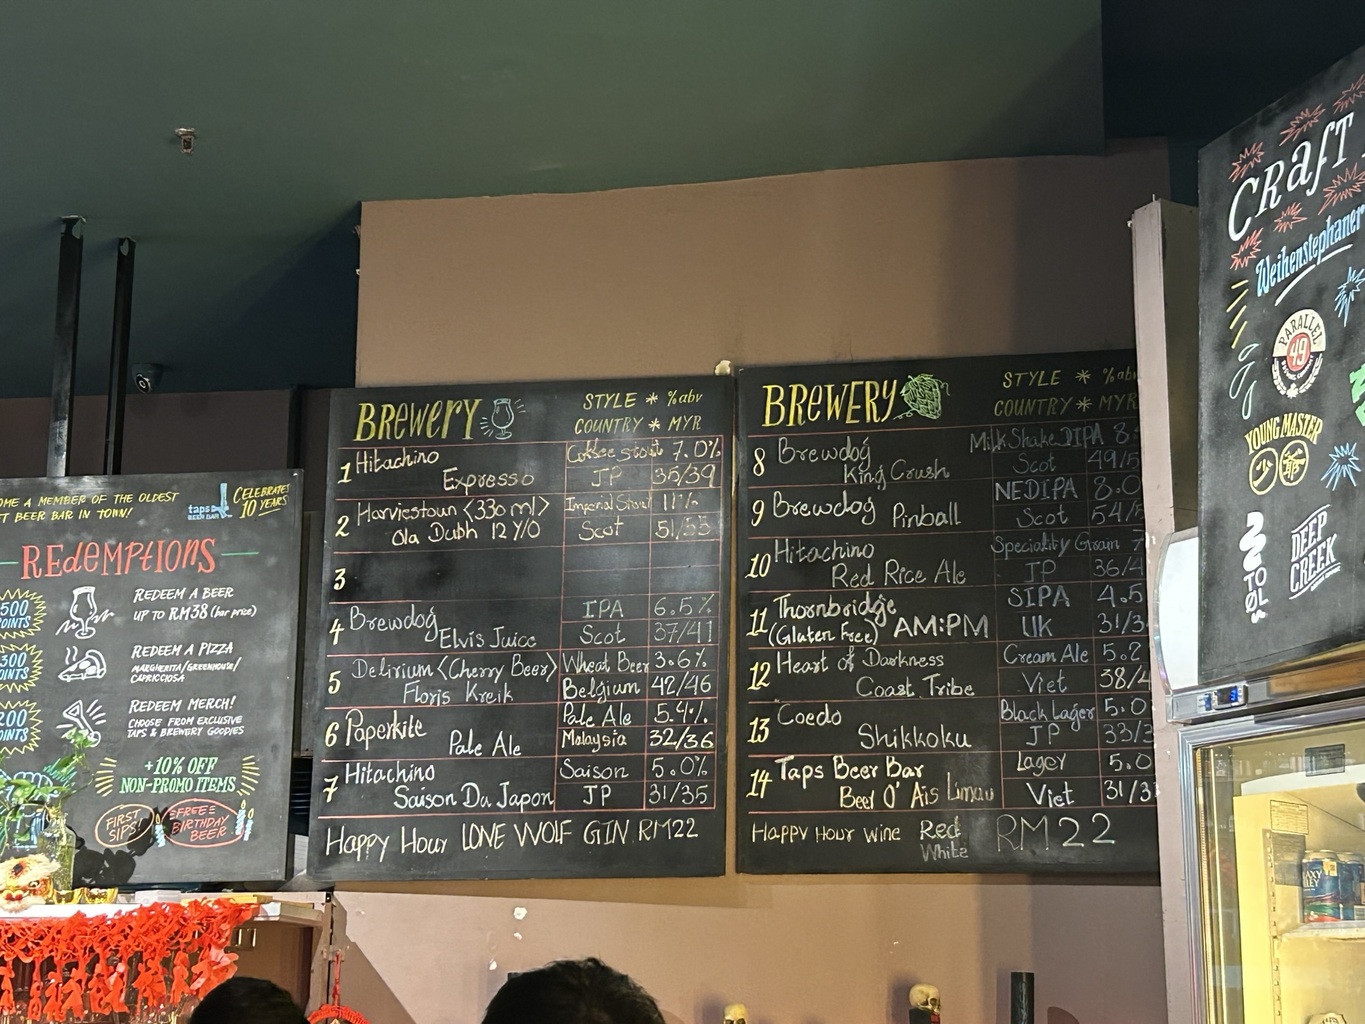 OME A MEMBER OF THE OLDEST
T BEER BAR IN TOWN!
taps
BEER BAR
CELEBRATE!
10 YEARS
REDEMPTIONS
500
POINTS
REDEEM A BEER
UP TO RM38 (bar price)
300
POINTS
REDEEM A PIZZA
MARGHERITA/GREENHOUSE/
CAPRICCIOSA
200
POINTS
REDEEM MERCH!
CHOOSE FROM EXCLUSIVE
TAPS & BREWERY GOODIES
+10% OFF
NON-PROMO ITEMS
FIRST
SIPS!
FREE
BIRTHDAY
BEER
BREWERY
STYLE * %abv
COUNTRY * MYR
1 Hitachino Coffee stout 7.0%
Expresso JP 35/39
2 Harviestoun <330 ml> Imperial Stout 11%
Ola Dubh 12 Y/O Scot 51/55
3
4 Brewdog IPA 6.5%
Elvis Juice Scot 37/41
5 Delirium <Cherry Beer> Wheat Beer 3.6%
Floris Kreik Belgium 42/46
6 Paperkite Pale Ale 5.4%
Pale Ale Malaysia 32/36
7 Hitachino Saison 5.0%
Saison Du Japon JP 31/35
Happy Hour LONE WOLF GIN RM22
BREWERY
STYLE * %abv
COUNTRY * MYR
8 Brewdog MilkShake DIPA 8.
King Crush Scot 49/5
9 Brewdog NEDIPA 8.0
Pinball Scot 54/
10 Hitachino Speciality Grain 7
Red Rice Ale JP 36/4
11 Thornbridge SIPA 4.5
(Gluten Free) AM:PM UK 31/3
12 Heart of Darkness Cream Ale 5.2
Coast Tribe Viet 38/4
13 Coedo Black Lager 5.0
Shikkoku JP 33/3
14 Taps Beer Bar Lager 5.0
Beer O' Ais Limau Viet 31/3
Happy Hour Wine Red RM22
White
CRaFT
Weihenstephaner
PARALLEL
49
YOUNG MASTER
少爺
TO
ØL
DEEP
CREEK